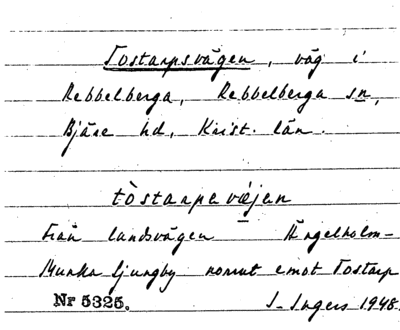 Tostarpsvägen, väg i
Rebbelberga, Rebbelberga sn,
Bjäre hd, Krist. län.
tòstarpavæjen
Från landsvägen Ängelholm–
Munka Ljungby norrut emot Tostarp
Nr 5325. I. Ingers 1948.